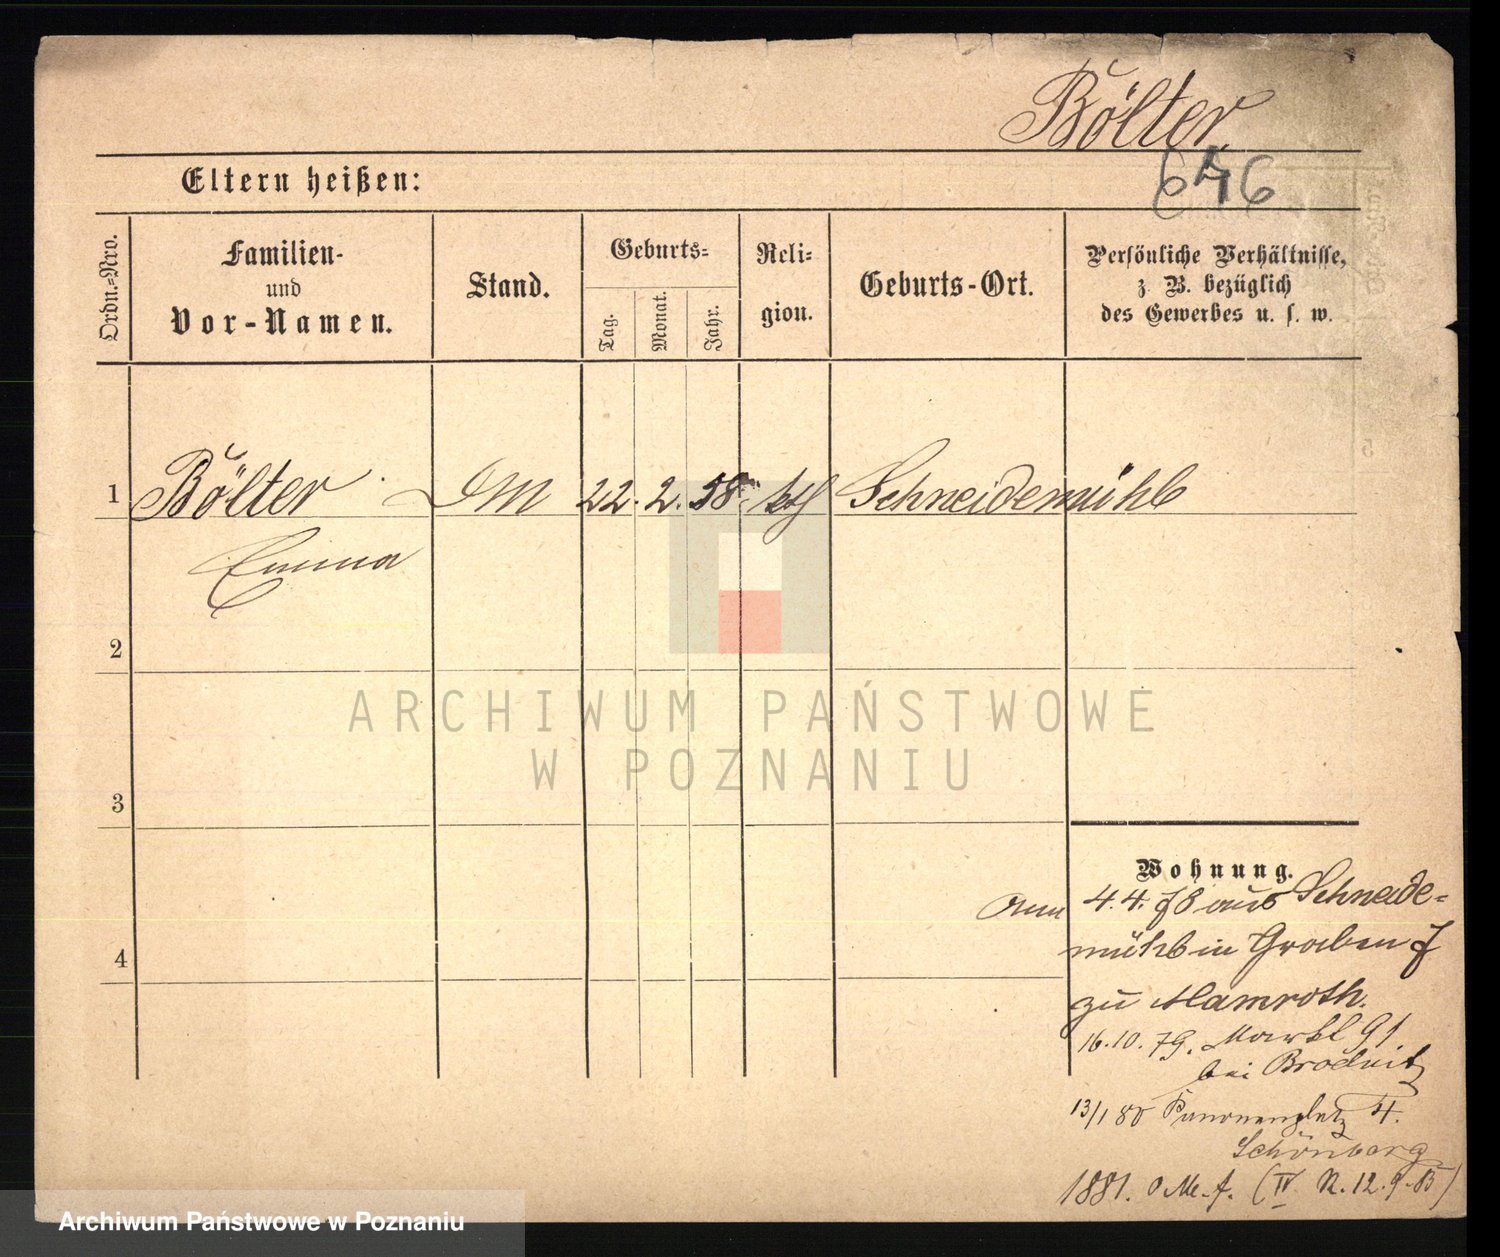 Bölter
646
Eltern heißen:
Ordn.=Nro.
Familien-
und
Vor-Namen.
Stand.
Geburts=
Tag.
Monat.
Jahr.
Reli-
gion.
Geburts-Ort.
Persönliche Verhältnisse,
z. B. bezüglich
des Gewerbes u. s. w.
1 Bölter DM 22. 2. 58. kth Schneidemühl
Emma
2
3
4
Wohnung.
4. 4. 78 aus Schneide=
mühl in Graben 7
zu Mamroth.
16. 10. 79. Markt 91
bei Brodnitz
13/1 80 4.
Schönberg
1881. o. Me. f. (IV N. 12. 9. 85)
ARCHIWUM PAŃSTWOWE
W POZNANIU
Archiwum Państwowe w Poznaniu